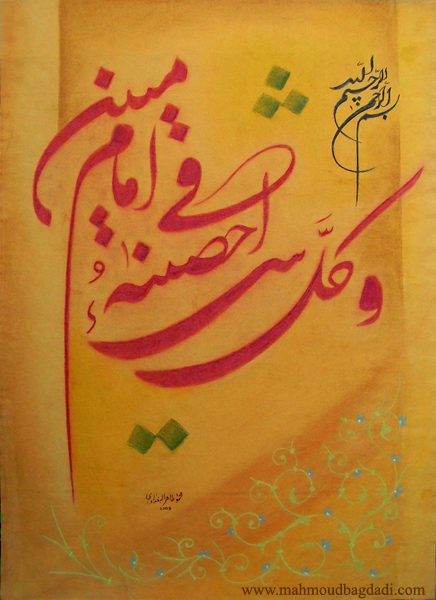 بسم الله الرحمن الرحيم
وكلَّ شيءٍ احصينٰهُ
في امام مبين
www.mahmoudbagdadi.com